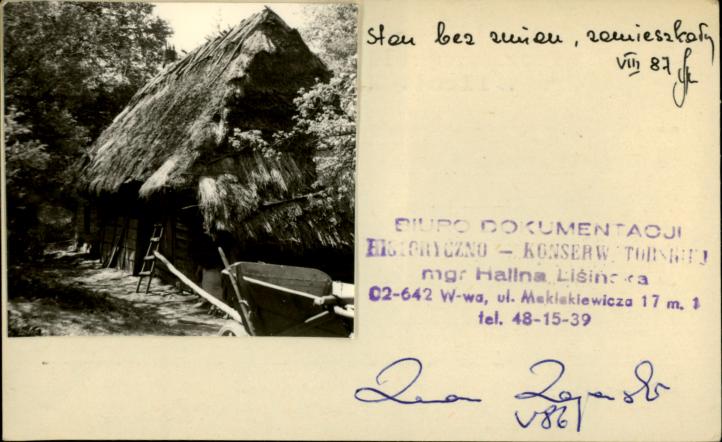 Stan bez zmian, zamieszkały
VIII 87
BIURO DOKUMENTACJI
HISTORYCZNO – KONSERWATORSKIEJ
mgr Halina Lisińska
02-642 W-wa, ul. Maklakiewicza 17 m. 1
tel. 48-15-39
V 86